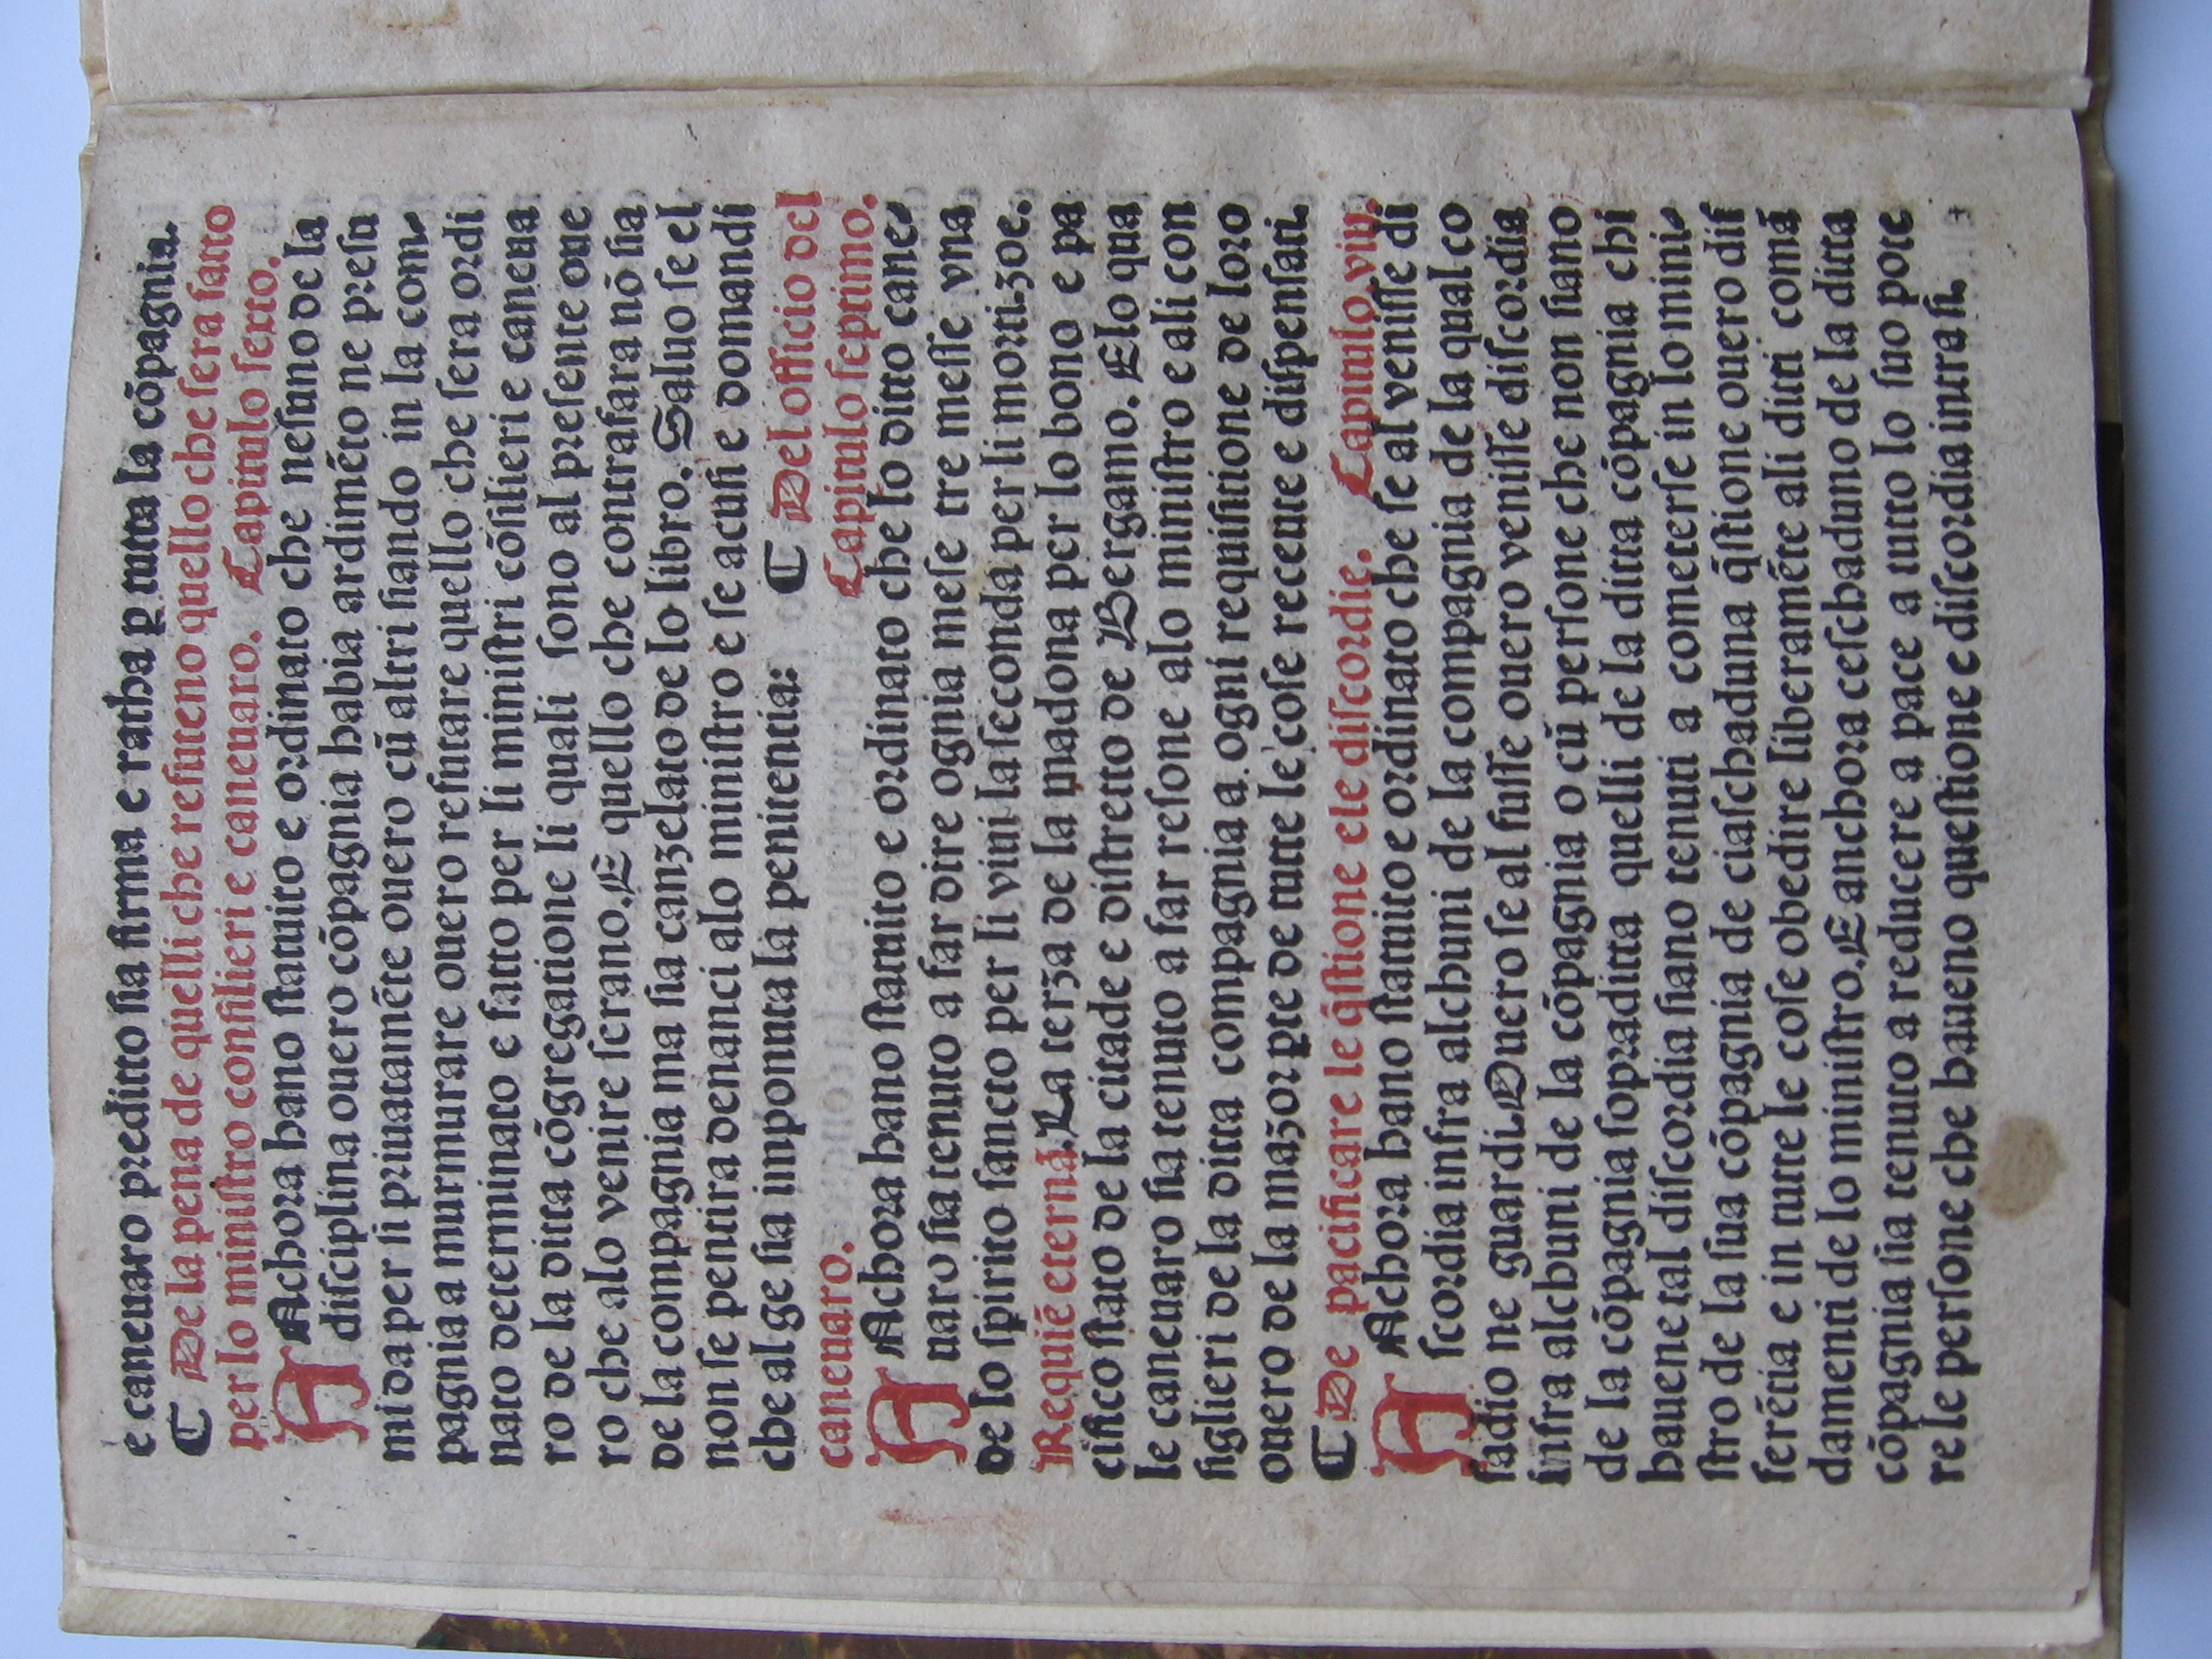 e caneuaro preditto sia firma e ratha ꝑ tutta la cōpagnia.
¶ De la pena de quelli che refuteno quello che sera fatto
per lo ministro consilieri e caneuaro. Capitulo sexto.
A Achora hano statuito e ordinato che nesuno de la
disciplina ouero cōpagnia habia ardimēto ne presu
mi da per si priuatamēte ouero cū altri siando in la com-
pagnia a murmurare ouero refutare quello che sera ordi
nato determinato e fatto per li ministri cōsilieri e caneua
ro de la ditta cōgregatione li quali sono al presente oue
ro che alo venire serano. E quello che contrafara nō sia
de la compagnia ma sia canzelato de lo libro. Saluo se el
non se pentira denanci alo ministro e se acusi e domandi
che al ge sia imponuta la penitentia: ¶ Del officio del
caneuaro. Capitulo septimo.
A Achora hano statuito e ordinato che lo ditto cane-
uaro sia tenuto a far dire ognia mese tre messe vna
de lo spirito sancto per li viui la seconda per li morti zoe.
Requiē eternā. La terza de la madona per lo bono e pa
cifico stato de la citade e distretto de Bergamo. Elo qua
le caneuaro sia tenuto a far resone alo ministro e ali con
siglieri de la ditta compagnia a ogni requisitione de loro
ouero de la mazor ꝑte de tutte le cose recceute e dispensati.
¶ De pacificare le q̄stione ele discordie. Capitulo. viij.
A Achora hano statuito e ordinato che se al venisse di
scordia infra alchuni de la compagnia de la qual co
sa dio ne guardi. Ouero se al fusse ouero venisse discordia
infra alchuni de la cōpagnia o cū persone che non siano
de la cōpagnia sopraditta quelli de la ditta cōpagnia chi
haueue tal discordia siano tenuti a cometerse in lo mini-
stro de la sua cōpagnia de ciaschaduna q̄stione ouero dif
ferētia e in tutte le cose obedire liberamēte ali ditti comā
damenti de lo ministro. E anchora ceschaduno de la ditta
cōpagnia sia tenuto a reducere a pace a tutto lo suo pote
re le persone che haueno questione e discordia intra si.